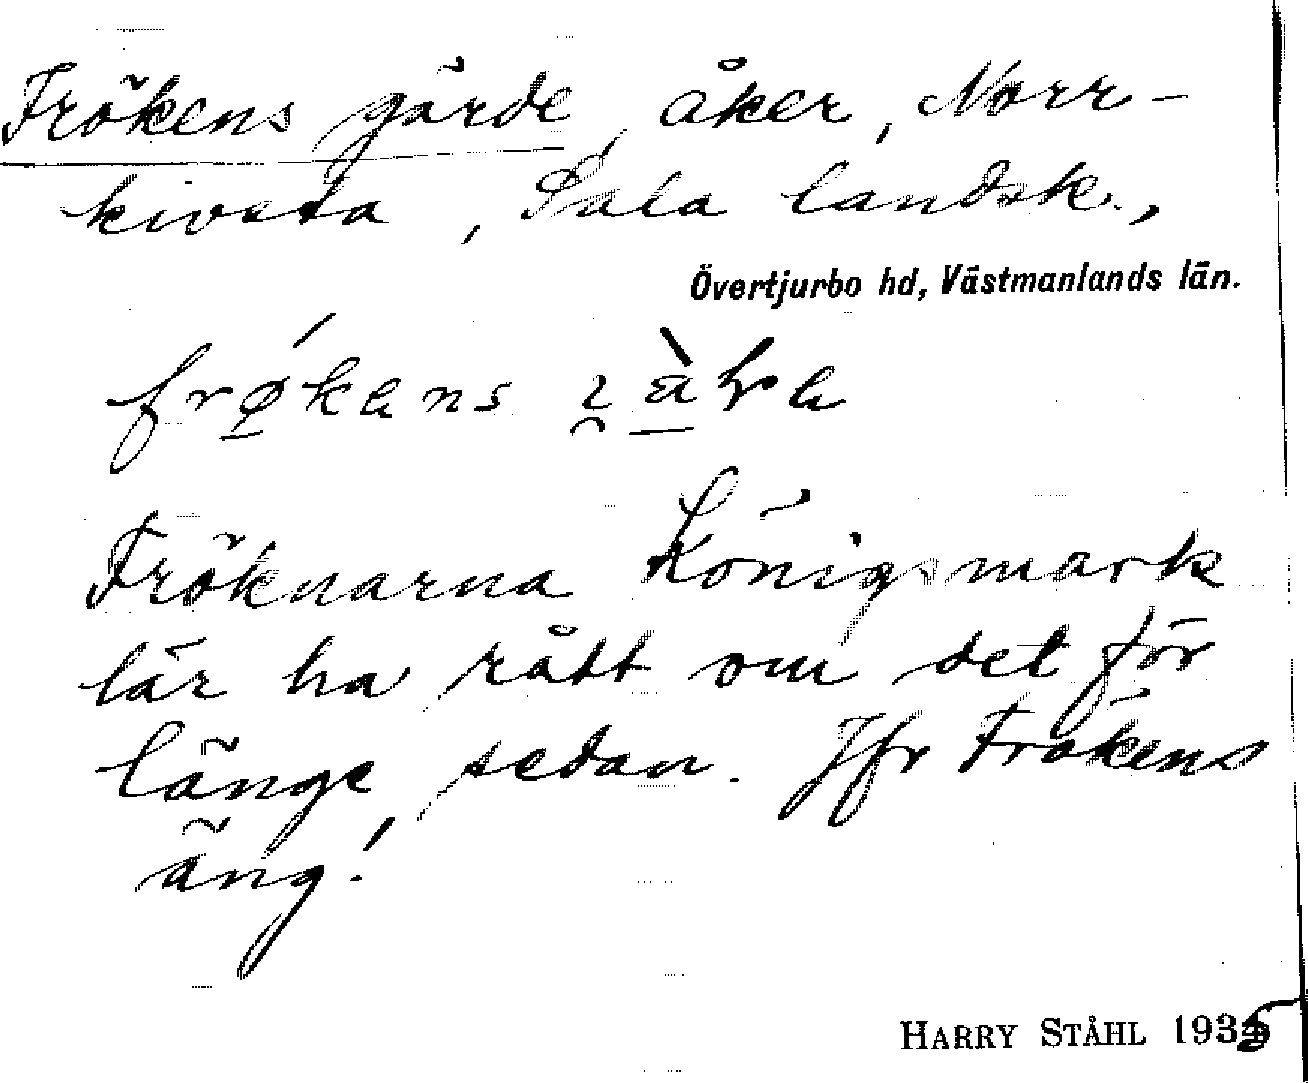 Frökens gärde, åker, Norr-
kivsta, Sala landsk.,
Övertjurbo hd, Västmanlands län.
frökens
Fröknarna Königsmark
lär ha rått om det för
länge sedan. Jfr Frökens
äng!
HARRY STÅHL 1935